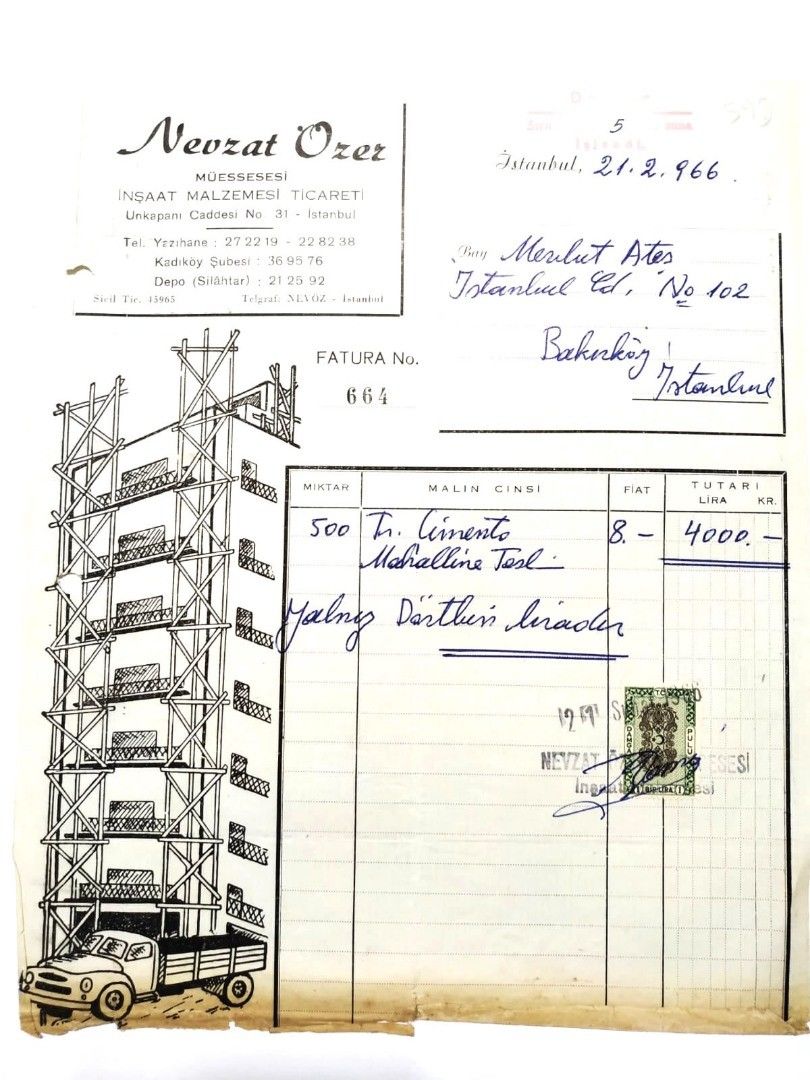 Nevzat Özer
MÜESSESESİ
İNŞAAT MALZEMESİ TİCARETİ
Unkapanı Caddesi No. 31 - İstanbul
Tel. Yazıhane : 27 22 19 - 22 82 38
Kadıköy Şubesi : 36 95 76
Depo (Silâhtar) : 21 25 92
Sicil Tic. 45965 Telgraf: NEVÖZ - İstanbul
5
İstanbul, 21.2.966.
Bay Mevlut Ateş
İstanbul Cd. No 102
Bakırköy
İstanbul
FATURA No.
664
MİKTAR MALIN CİNSİ FİAT TUTARI
LİRA KR.
500 Tr. Cimento 8.- 4000.-
Mahalline Tesl.
Yalnız Dörtbin liradır
DAMGA PULU
BİR LİRA
NEVZAT ESESİ
İnşaat esi